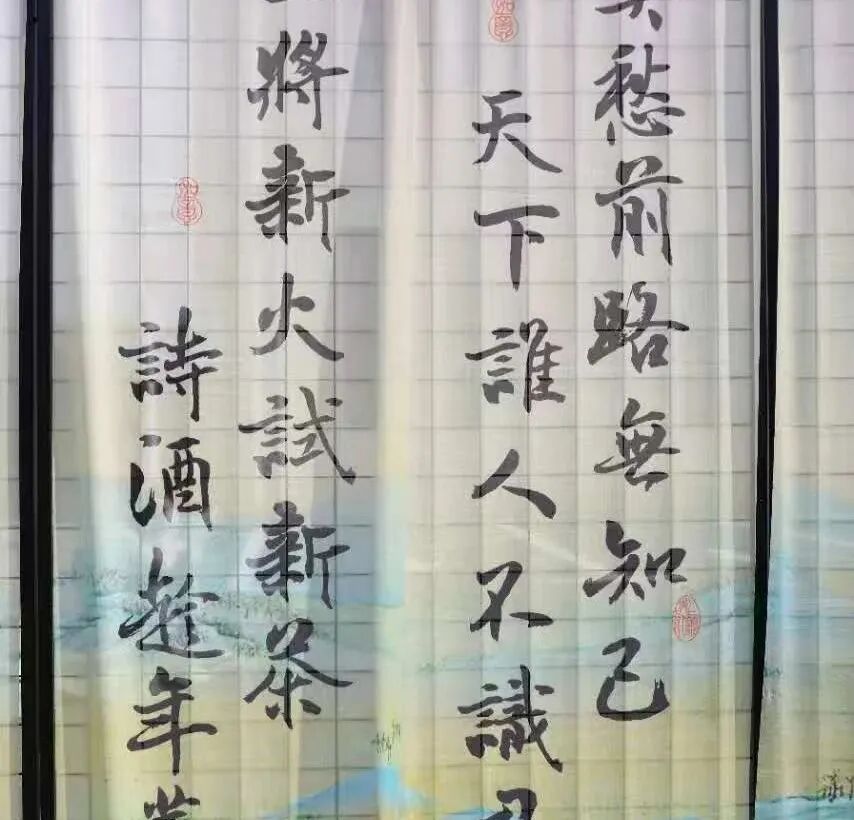 愁前路無知己
天下誰人不識
將新火試新茶
詩酒趁年